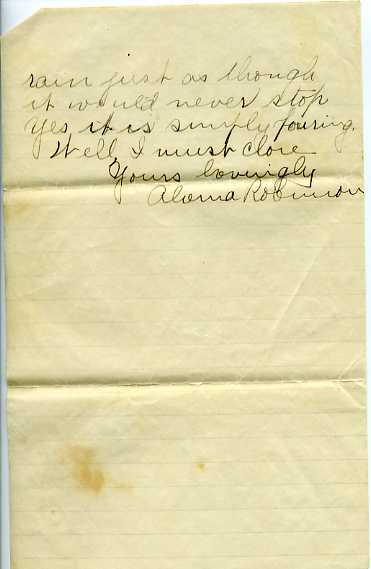 rain just as though
it would never stop
Yes it is simply pouring.
Well, I must close
Yours lovingly
Robinson